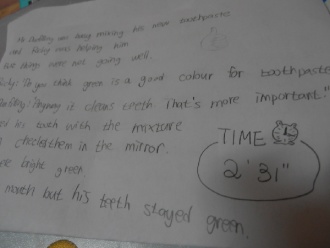 Mr Duffling was busy mixing his new toothpaste
and Ricky was helping him
but things were not going well.
Do you think green is a good colour for toothpaste
Anyway it cleans teeth that's more important!"
teeth with the mixture
checked them in the mirror.
were bright green
mouth but his teeth stayed green.
TIME
2'31"